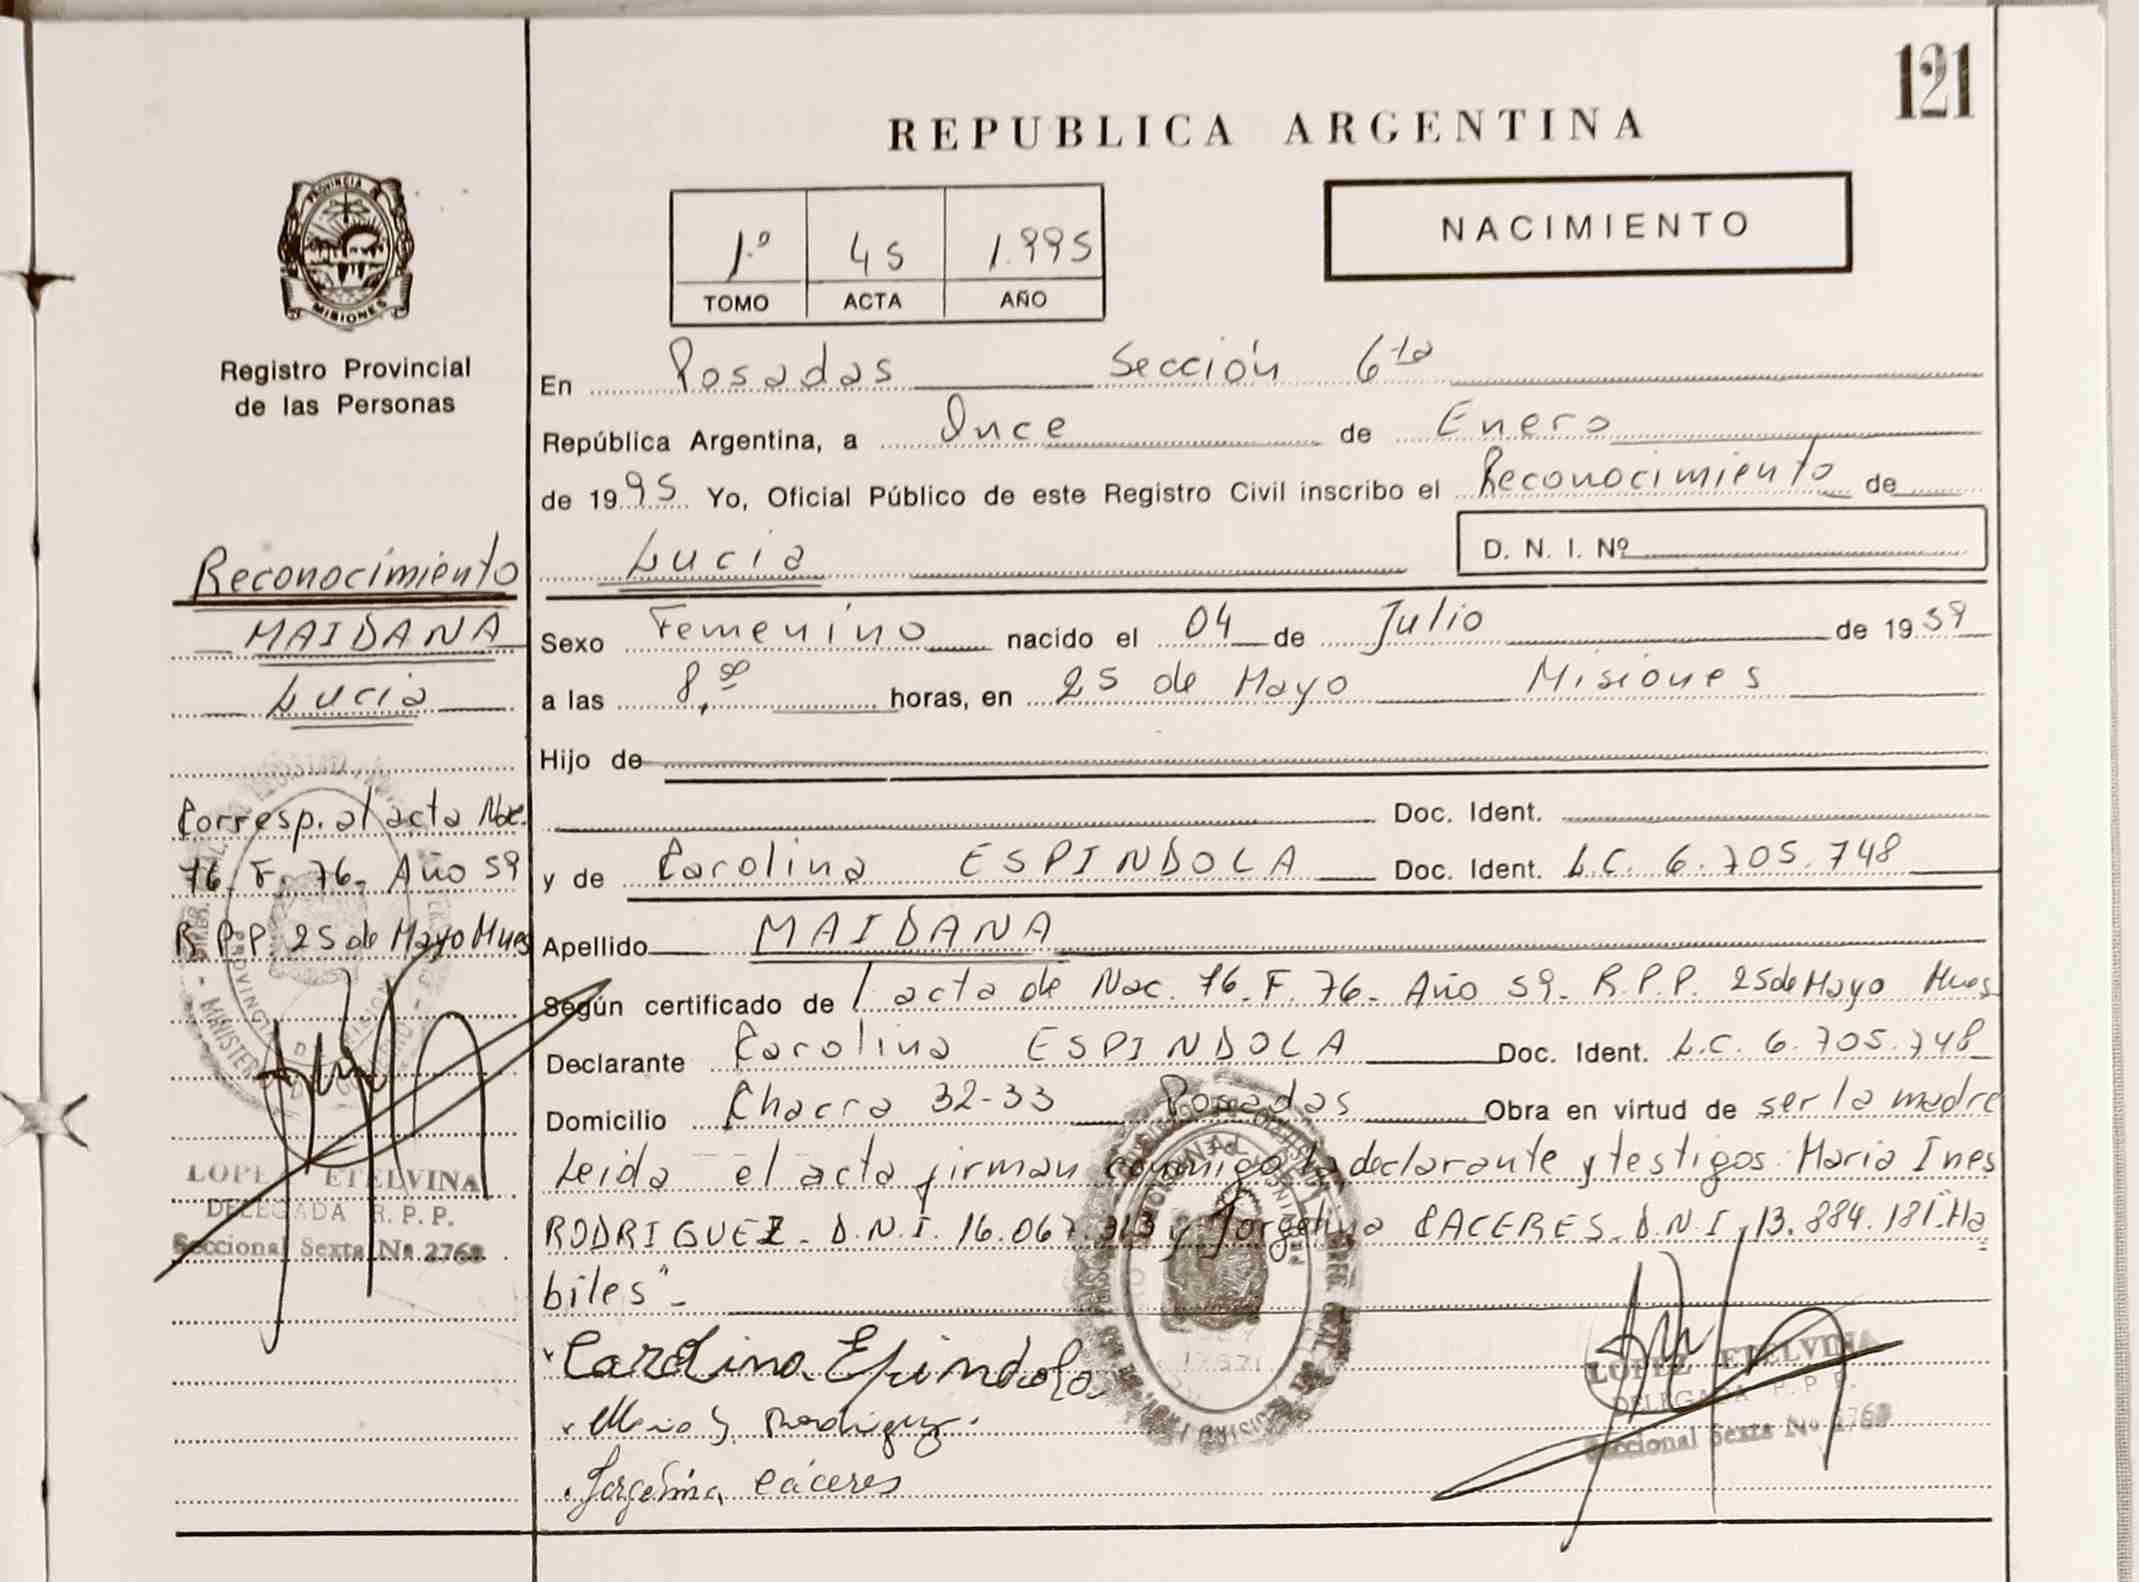 121
REPUBLICA ARGENTINA
NACIMIENTO
1º 45 1.995
TOMO ACTA AÑO
PROVINCIA DE
MISIONES
Registro Provincial
de las Personas
En Posadas Sección 6ta
República Argentina, a Once de Enero
de 1995 Yo, Oficial Público de este Registro Civil inscribo el Reconocimiento de
Lucia D. N. I. Nº
Reconocimiento
MAIDANA
Lucia
Sexo Femenino nacido el 04 de Julio de 1959
a las 8,00 horas, en 25 de Mayo Misiones
Hijo de
Doc. Ident.
Corresp. al acta Nac.
76. F. 76. Año 59
R.P.P. 25 de Mayo Mnes
y de Carolina ESPINDOLA Doc. Ident. L.C. 6.705.748
Apellido MAIDANA
Según certificado de l acta de Nac. 76. F. 76. Año 59. R.P.P. 25 de Mayo Mnes
Declarante Carolina ESPINDOLA Doc. Ident. L.C. 6.705.748
Domicilio Chacra 32-33 Posadas Obra en virtud de ser la madre
Leida el acta firman conmigo la declarante y testigos: Maria Ines
RODRIGUEZ. D.N.I. 16.067.313 y Jorgelina CACERES. D.N.I. 13.884.181."Ha
biles"-
Carolina Epindola
Jorgelina Cáceres
LOPEZ ETELVINA
DELEGADA R. P. P.
Seccional Sexta No. 2768
LOPEZ ETELVINA
DELEGADA R. P. P.
Seccional Sexta No 2768